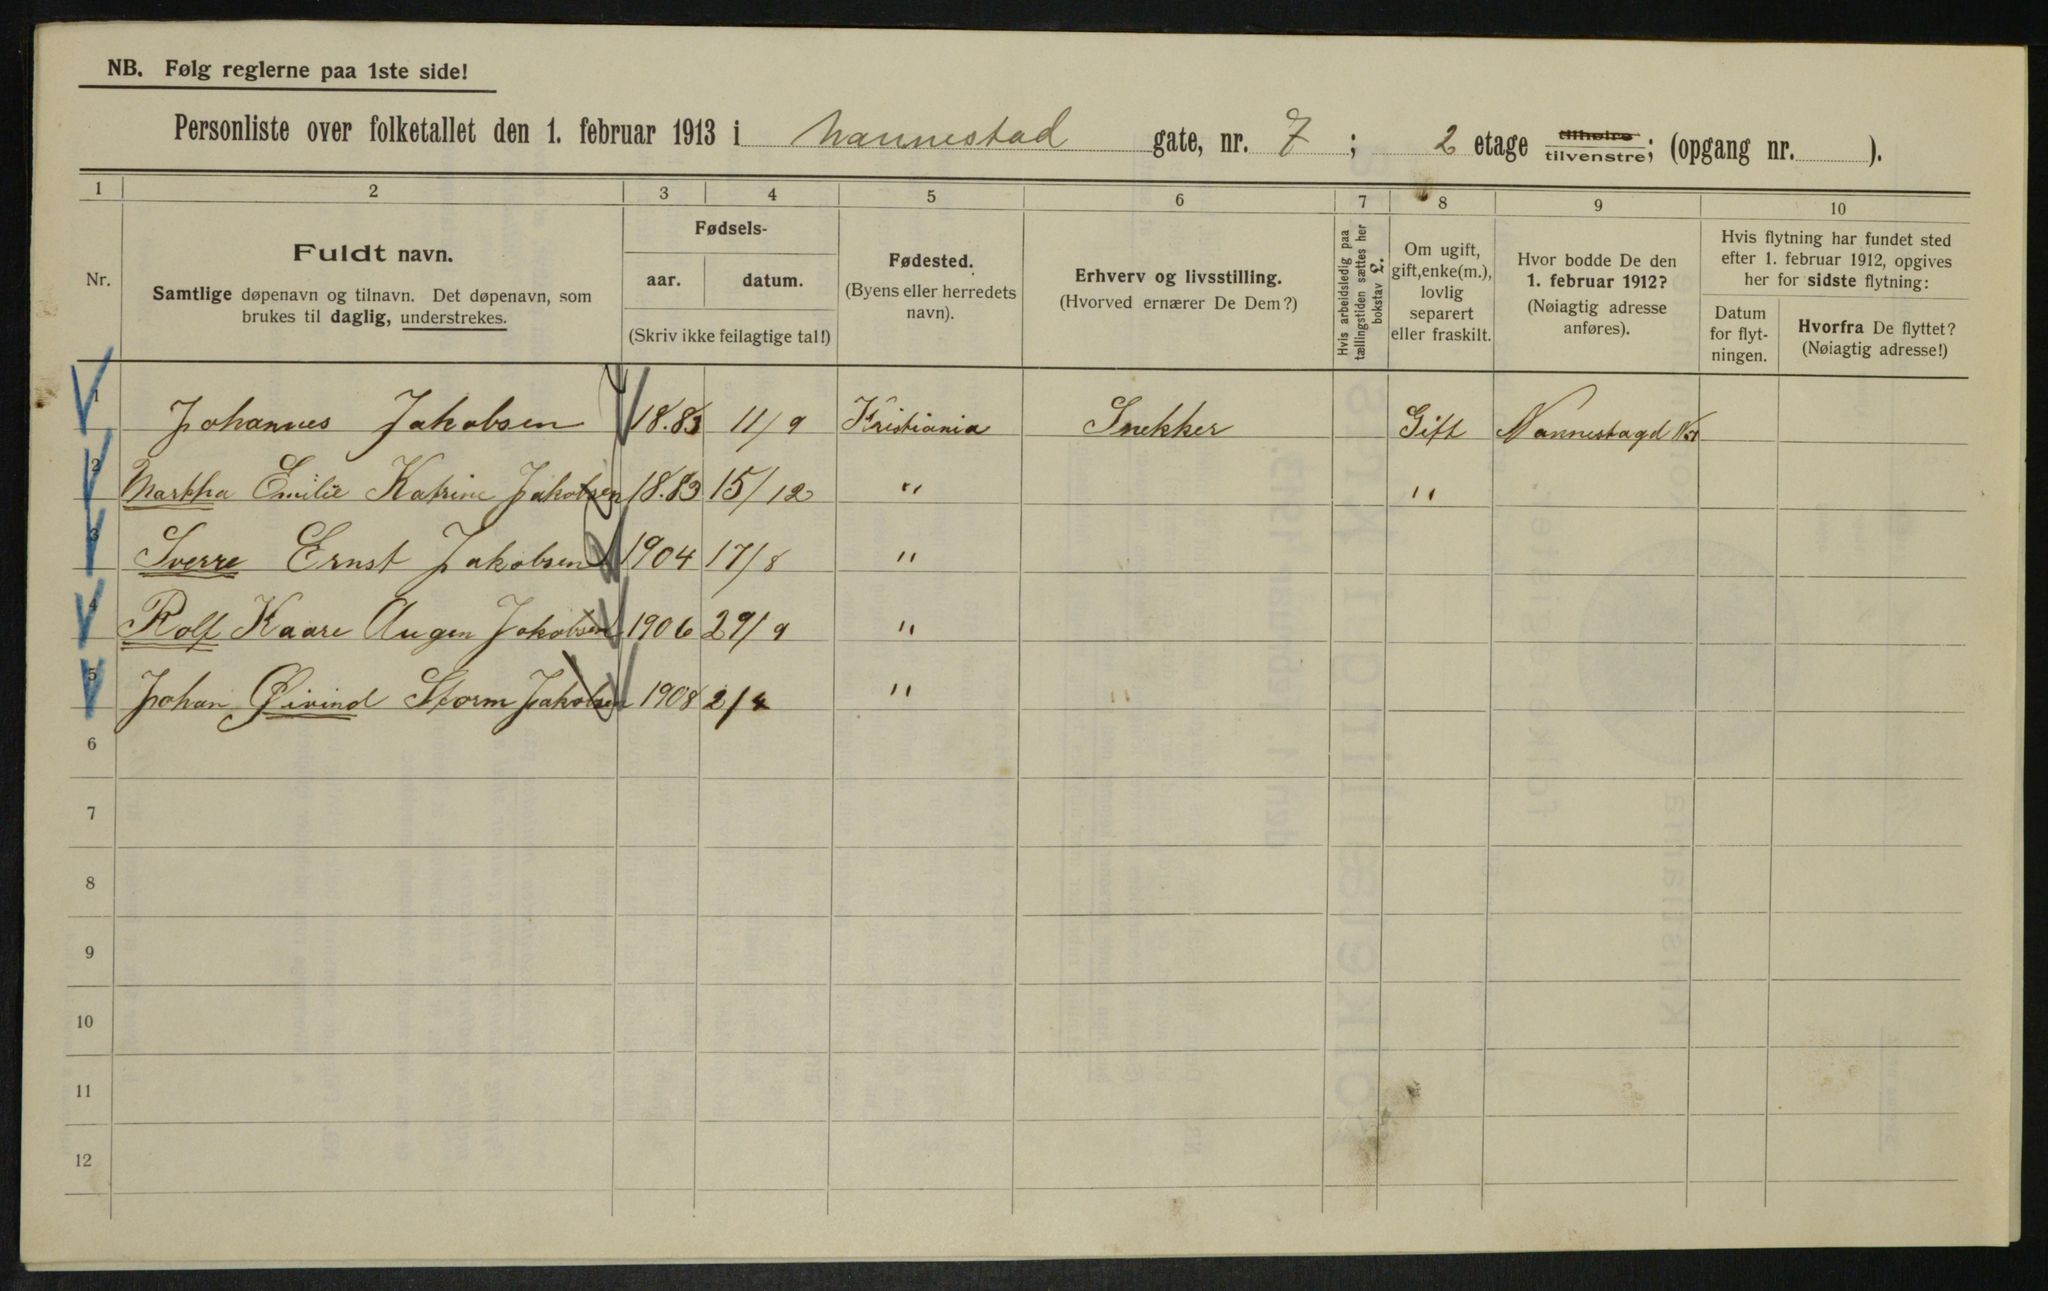 NB. Følg reglerne paa 1ste side!
Personliste over folketallet den 1. februar 1913 i Nannestad gate, nr. 7 ; 2 etage tilhøire tilvenstre; (opgang nr. ).
1 2 3 4 5 6 7 8 9 10
Nr.
Fuldt navn.
Samtlige døpenavn og tilnavn. Det døpenavn, som
brukes til daglig, understrekes.
Fødsels-
aar. datum.
(Skriv ikke feilagtige tal!)
Fødested.
(Byens eller herredets
navn).
Erhverv og livsstilling.
(Hvorved ernærer De Dem?)
Hvis arbeidsledig paa
tællingstiden sættes her
bokstav L.
Om ugift,
gift, enke(m.),
lovlig
separert
eller fraskilt.
Hvor bodde De den
1. februar 1912?
(Nøiagtig adresse
anføres).
Hvis flytning har fundet sted
efter 1. februar 1912, opgives
her for sidste flytning:
Datum
for flyt-
ningen.
Hvorfra De flyttet?
(Nøiagtig adresse!)
1 Johannes Jakobsen 18.83 11/9 Kristiania Snekker Gift Nannestagd No7
2 Martha Emilie Katrine Jakobsen 18.83 15/12 " "
3 Sverre Ernst Jakobsen 1904 17/8 "
4 Rolf Kaare Augen Jakobsen 1906 29/9 "
5 Johan Øivind Storm Jakobsen 1908 2/4 "
6
7
8
9
10
11
12